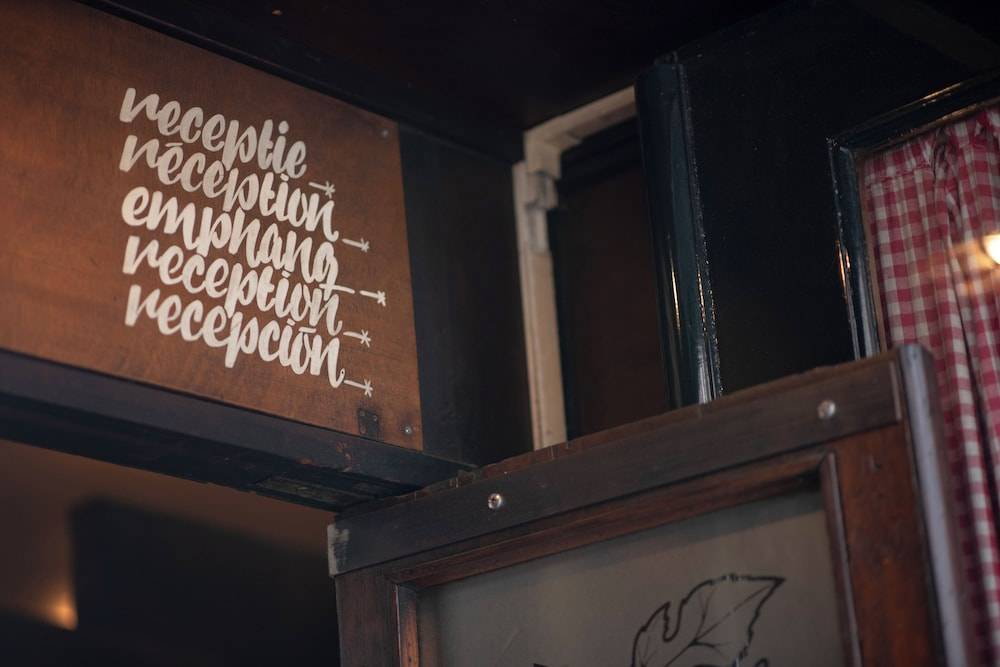 receptie
réception
emphang
reception
recepción